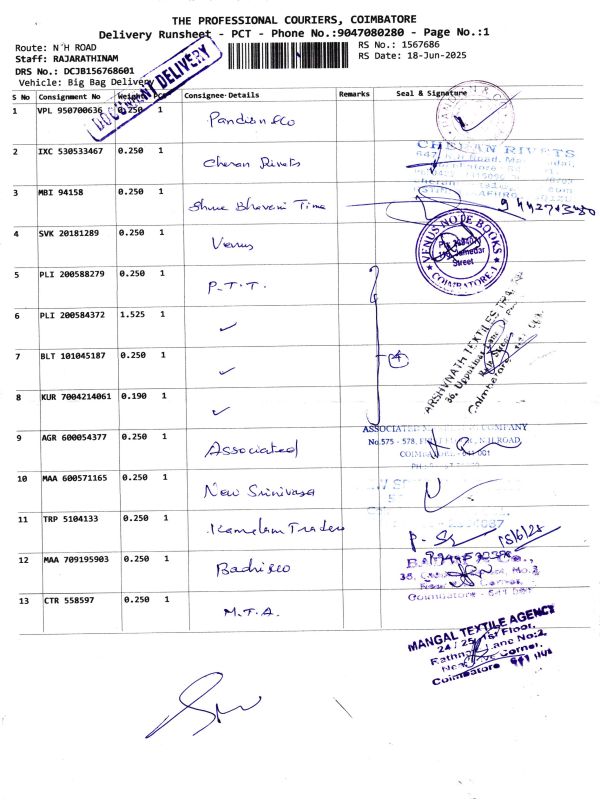 THE PROFESSIONAL COURIERS, COIMBATORE
Delivery Runsheet - PCT - Phone No.:9047080280 - Page No.:1
Route: N´H ROAD
RS No.: 1567686
Staff: RAJARATHINAM
RS Date: 18-Jun-2025
DRS No.: DCJB156768601
Vehicle: Big Bag Delivery
DOCUMENT DELIVERY
S No Consignment No Weight PCS Consignee Details Remarks Seal & Signature
1 VPL 950700636 0.250 1 Pandian &Co
2 IXC 530533467 0.250 1 Cheran Rivets
CHERAN RIVETS
3 MBI 94158 0.250 1 Shree Bhavani Time
4 SVK 20181289 0.250 1 Venus
VENUS NOTE BOOKS
Street
COIMBATORE-1
5 PLI 200588279 0.250 1 P.T.T.
6 PLI 200584372 1.525 1 ✓
7 BLT 101045187 0.250 1 ✓
4
8 KUR 7004214061 0.190 1 ✓
ARSHVNATH TEXTILES
Coimbatore
9 AGR 600054377 0.250 1 Associated
ASSOCIATED COMPANY
No.575 - 578, N.H.ROAD,
10 MAA 600571165 0.250 1 New Srinivasa
11 TRP 5104133 0.250 1 Kamalam Traders
18/6/25
12 MAA 709195903 0.250 1 Badri &co
Coimbatore
13 CTR 558597 0.250 1 M.T.A.
MANGAL TEXTILE AGENCY
24 / 25, 1st Floor,
Lane No:2,
Corner,
Coimbatore